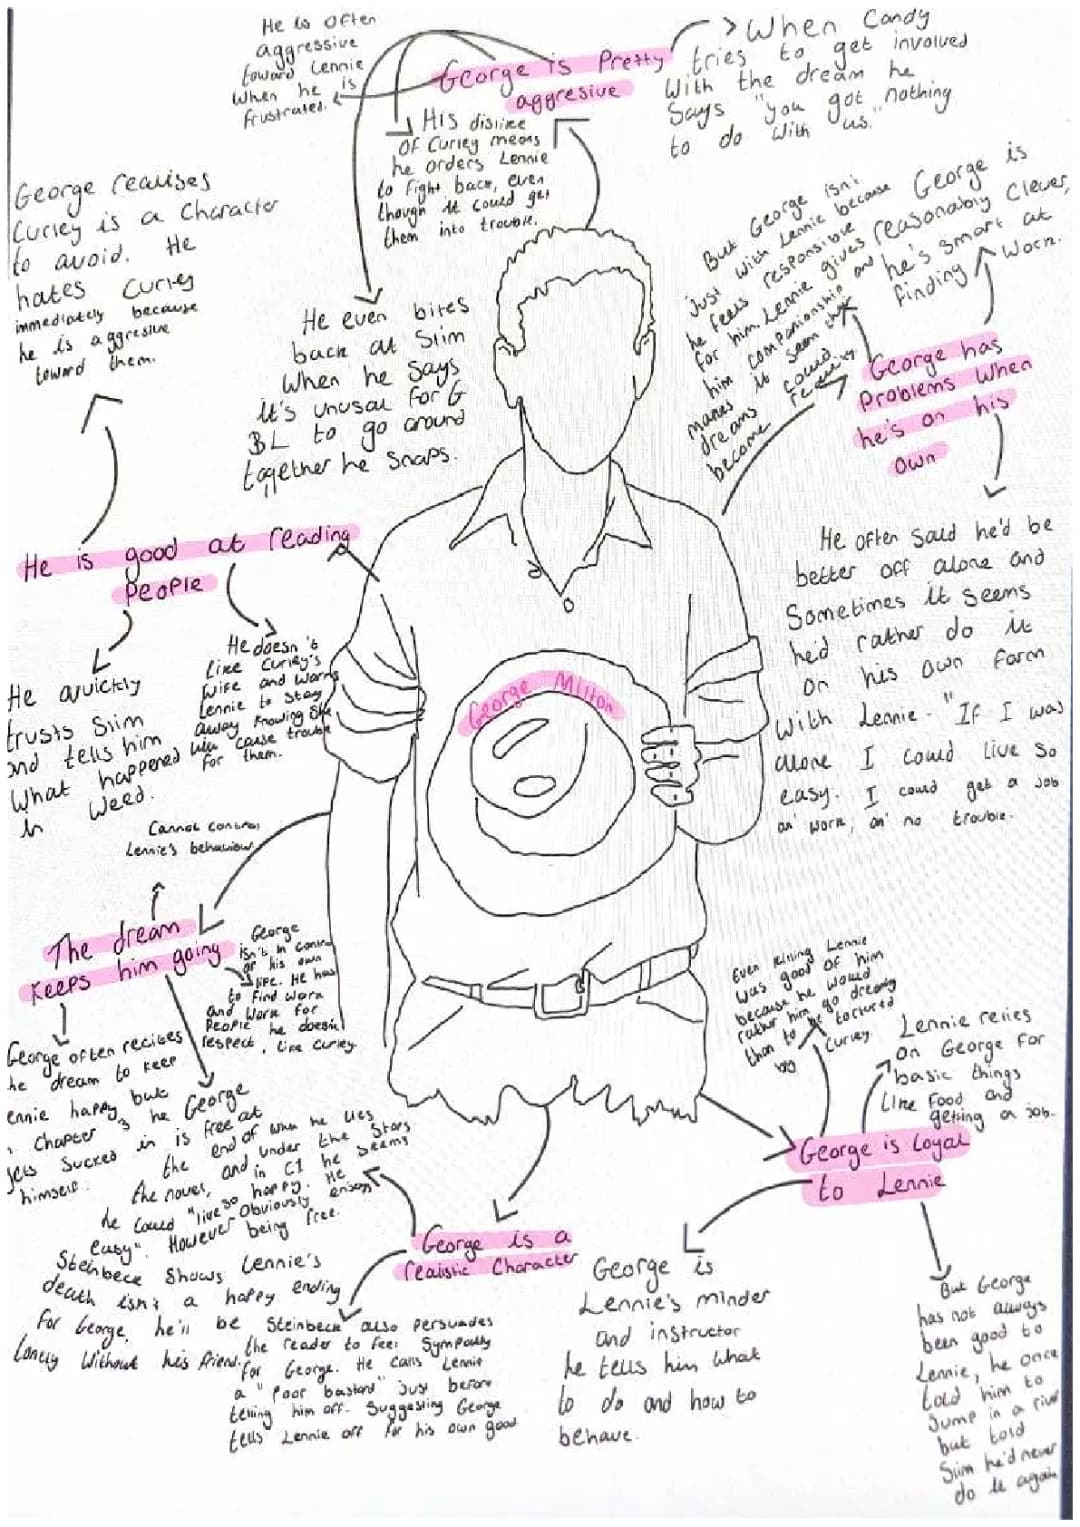 He is often
aggressive
toward Lennie
when he is
frustrated.
George is Pretty
aggresive
When Candy
tries to get involved
with the dream he
says "you got nothing
to do with us."
His dislike
of Curley means
he orders Lennie
to fight back, even
though it could get
them into trouble.
He even bites
back at Slim
when he says
it's unusual for G
BL to go around
together he snaps.
George realises
Curley is a character
to avoid. He
hates Curley
immediately because
he is aggresive
toward them.
He is good at reading
People
He quickly
trusts Slim
and tells him
what happened
in Weed.
He doesn't
like Curley's
wife and warns
Lennie to stay
away knowing she
will cause trouble
for them.
George has
Problems when
he's on his
own
George is
reasonably clever,
he's smart at
finding work.
But George isn't
just with Lennie because
he feels responsible
for him. Lennie gives
him companionship and
makes it seem the
dreams could
become reality
He often said he'd be
better off alone and
sometimes it seems
he'd rather do it
on his own farm
with Lennie. "If I was
alone I could live so
easy. I could get a job
an' work, an' no trouble.
George Milton
The dream
keeps him going
Cannot control
Lennie's behaviour
George
isn't in control
of his own
life. He has
to find work
and work for
People he doesn't
respect, like Curley.
George often recites
he dream to keep
ennie happy but
Chapter 3 he
gets sucked in
himself.
George
is free at
the end of
the novel, and in C1
he could "live so
easy". However
Steinbeck shows Lennie's
death isn't a happy ending
for George, he'll be
lonely without his friend.
George is a
realistic character
when he lies
under the stars
he seems
happy. He
obviously enjoys
being free.
Steinbeck also persuades
the reader to feel sympathy
for George. He calls Lennie
a "poor bastard" just before
telling him off. Suggesting George
tells Lennie off for his own good
George is Loyal
to Lennie
Even killing Lennie
was good of him
because he would
rather him go dreamy
than to be tortured
by Curley.
Lennie relies
on George for
basic things
like food and
getting a job.
George is
Lennie's minder
and instructor
he tells him what
to do and how to
behave.
But George
has not always
been good to
Lennie, he once
told him to
jump in a river
but told
Slim he'd never
do it again